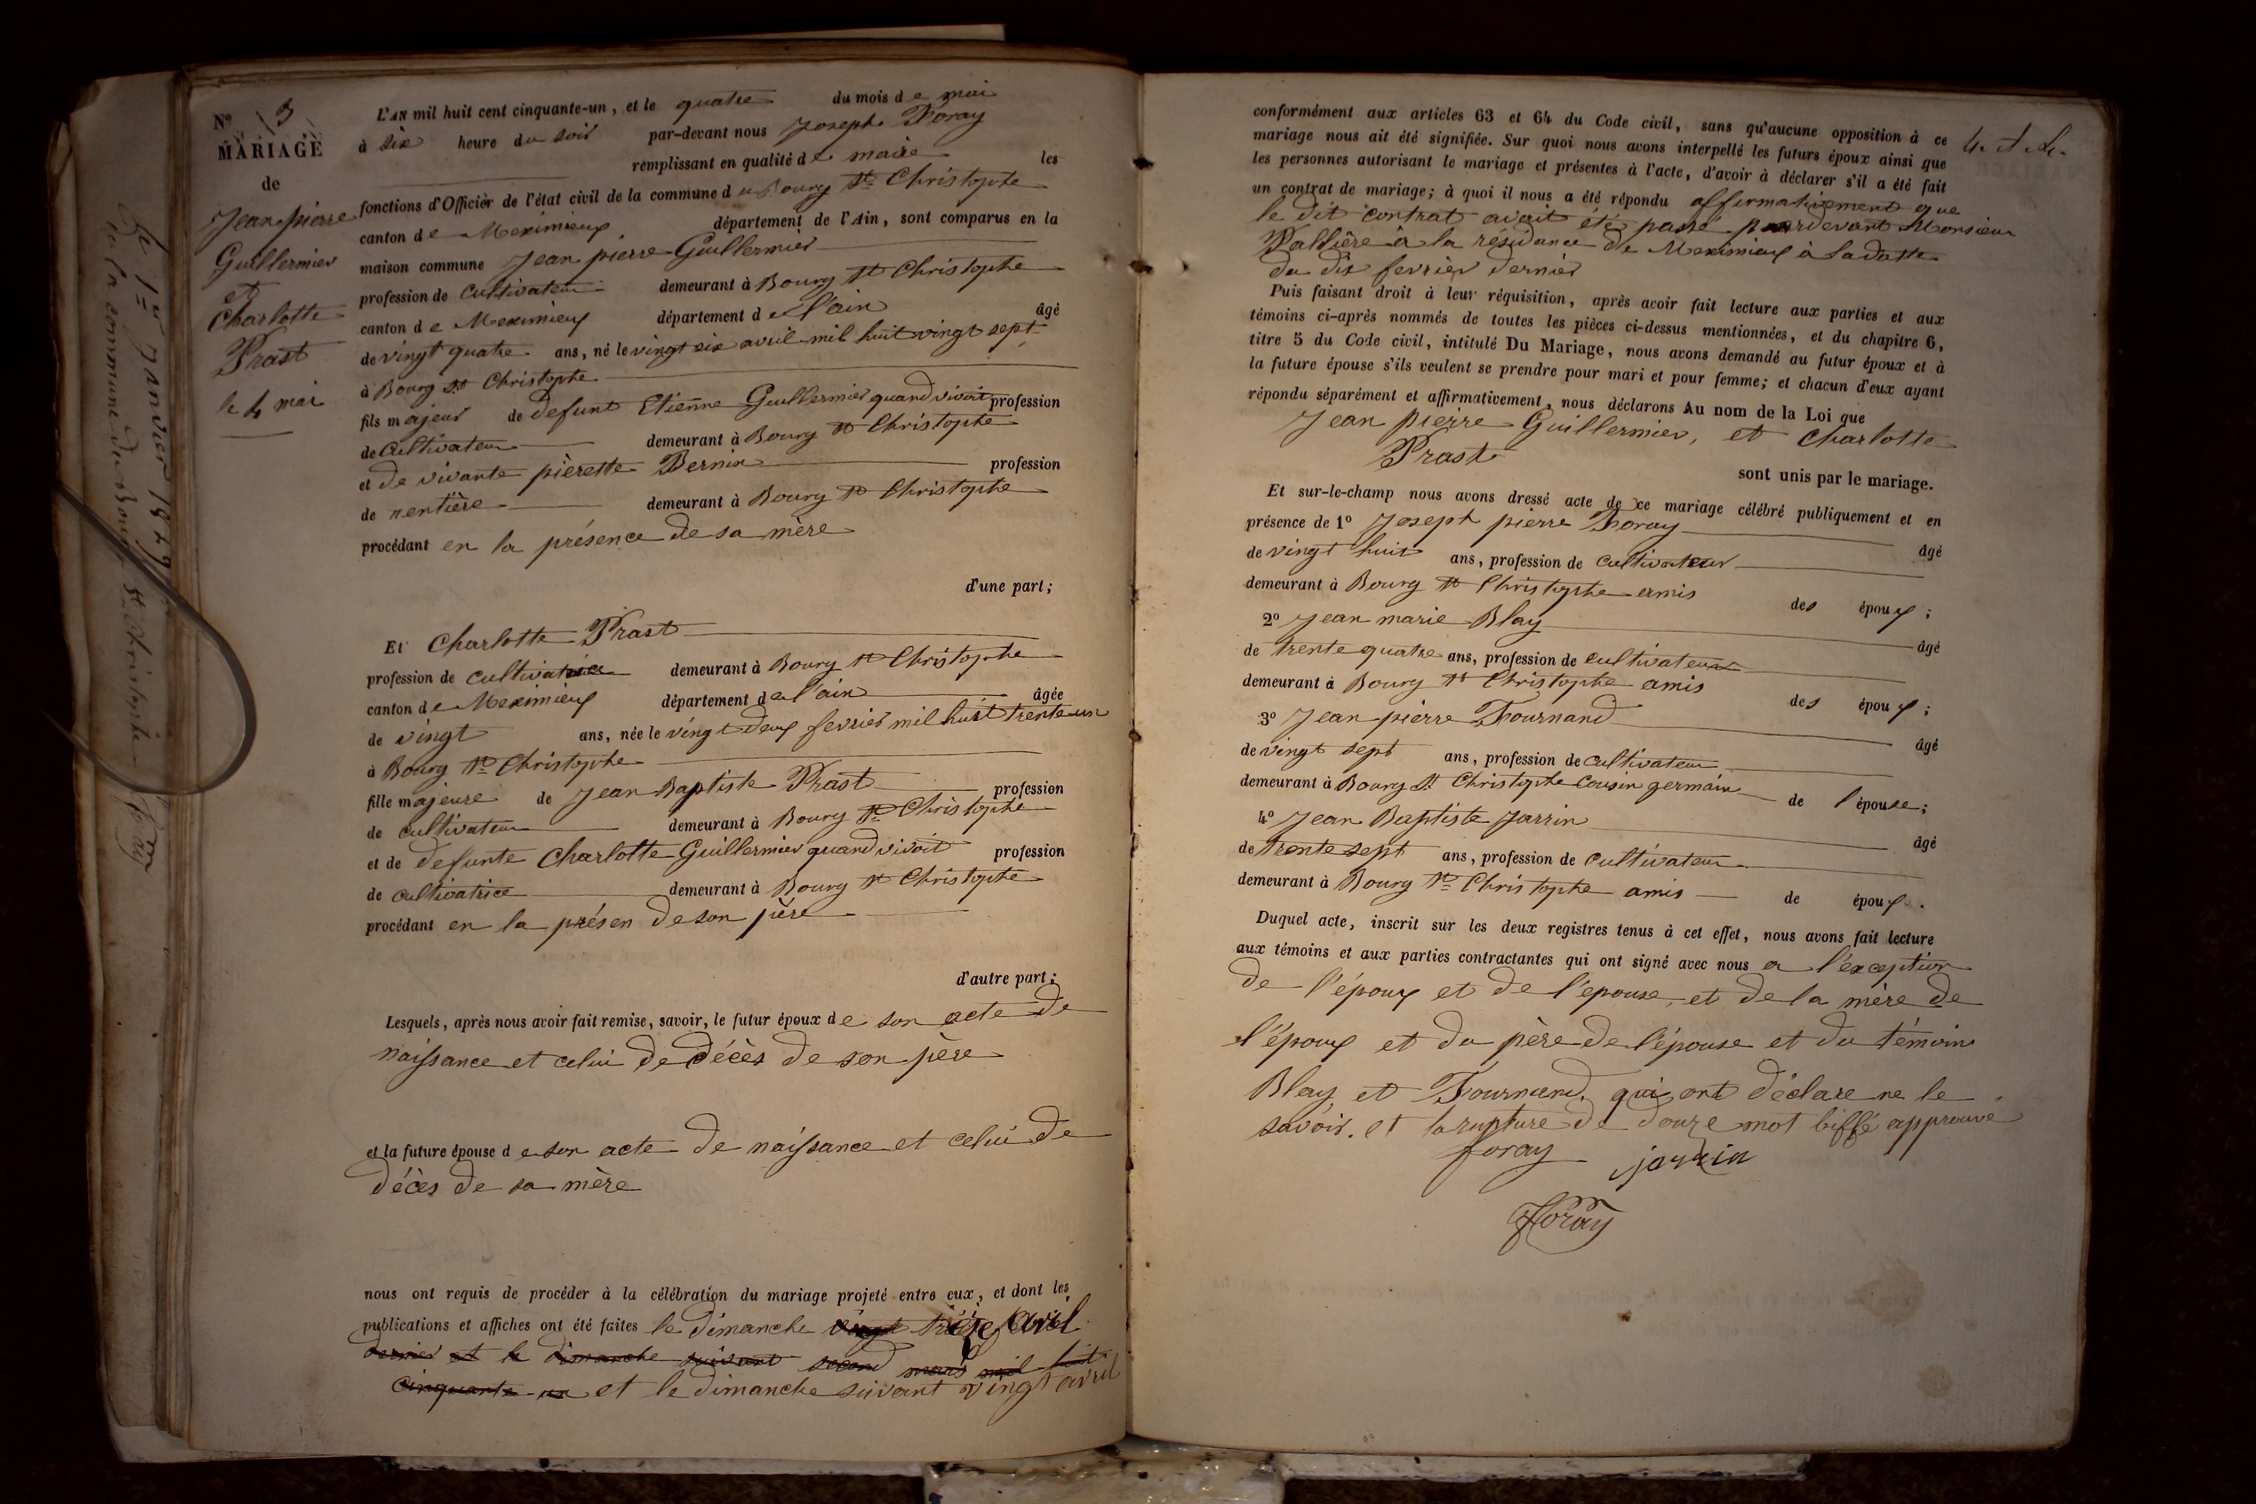 N° 3
MARIAGE
de
Jean pierre
Guillermier
et
Charlotte
Prast
le 4 mai
L'AN mil huit cent cinquante-un, et le quatre du mois de mai
à six heure du soir par-devant nous Joseph Foray
remplissant en qualité de maire les
fonctions d'Officier de l'état civil de la commune du Bourg St Christophe
canton de Meximieux département de l'Ain, sont comparus en la
maison commune Jean pierre Guillermier
profession de cultivateur demeurant à Bourg St Christophe
canton de Meximieux département de l'ain âgé
de vingt quatre ans, né le vingt six avril mil huit vingt sept
à Bourg St Christophe
fils majeur de defunt Etienne Guillermier quand vivoit profession
de cultivateur demeurant à Bourg St Christophe
et de vivante pièrette Bernin profession
de rentière demeurant à Bourg St Christophe
procédant en la présence de sa mère
d'une part;
Et Charlotte Prast
profession de cultivatrice demeurant à Bourg St Christophe
canton de Meximieux département de l'ain âgée
de vingt ans, née le vingt deux fevrier mil huit trente un
à Bourg St Christophe
fille majeure de Jean Baptiste Prast profession
de cultivateur demeurant à Bourg St Christophe
et de defunte Charlotte Guillermier quand vivoit profession
de cultivatrice demeurant à Bourg St Christophe
procédant en la présen de son père
d'autre part;
Lesquels, après nous avoir fait remise, savoir, le futur époux de son acte de
naissance et celui de décès de son père
et la future épouse de son acte de naissance et celui de
décès de sa mère
nous ont requis de procéder à la célébration du mariage projeté entre eux, et dont les
publications et affiches ont été faites le dimanche vingt treize avril
dernier et le dimanche suivant second mars mil huit
cinquante un et le dimanche suivant vingt avril
conformément aux articles 63 et 64 du Code civil, sans qu'aucune opposition à ce
mariage nous ait été signifiée. Sur quoi nous avons interpellé les futurs époux ainsi que
les personnes autorisant le mariage et présentes à l'acte, d'avoir à déclarer s'il a été fait
un contrat de mariage; à quoi il nous a été répondu affirmativement que
le dit contrat avait été passé pardevant Monsieur
Pallière à la résidance de Meximieux à la datte
du dix fevrier dernier
Puis faisant droit à leur réquisition, après avoir fait lecture aux parties et aux
témoins ci-après nommés de toutes les pièces ci-dessus mentionnées, et du chapitre 6,
titre 5 du Code civil, intitulé Du Mariage, nous avons demandé au futur époux et à
la future épouse s'ils veulent se prendre pour mari et pour femme; et chacun d'eux ayant
répondu séparément et affirmativement, nous déclarons Au nom de la Loi que
Jean pierre Guillermier, et Charlotte
Prast
sont unis par le mariage.
Et sur-le-champ nous avons dressé acte de ce mariage célébré publiquement et en
présence de 1° Joseph pierre Foray âgé
de vingt huit ans, profession de cultivateur
demeurant à Bourg St Christophe amis des époux;
2° Jean marie Blay âgé
de trente quatre ans, profession de cultivateur
demeurant à Bourg St Christophe amis des époux;
3° Jean pierre Fournand âgé
de vingt sept ans, profession de cultivateur
demeurant à Bourg St Christophe cousin germain de l'épouse;
4° Jean Baptiste Jarrin âgé
de trente sept ans, profession de cultivateur
demeurant à Bourg St Christophe amis de époux.
Duquel acte, inscrit sur les deux registres tenus à cet effet, nous avons fait lecture
aux témoins et aux parties contractantes qui ont signé avec nous a l'exception
de l'époux et de l'epouse, et de la mère de
l'époux et du père de l'épouse et du témoins
Blay et Fournand, qui ont déclare ne le
savoir. et la rupture de douze mot biffé approuvé
foray jarrin
Foray
le 1er janvier 1849
de la commune du Bourg St Christophe
Foray